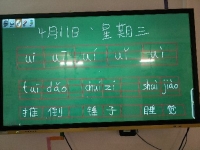 4月11日 星期三
uī uí uǐ uì
tuī dǎo chuí zi shuì jiào
推倒 锤子 睡觉